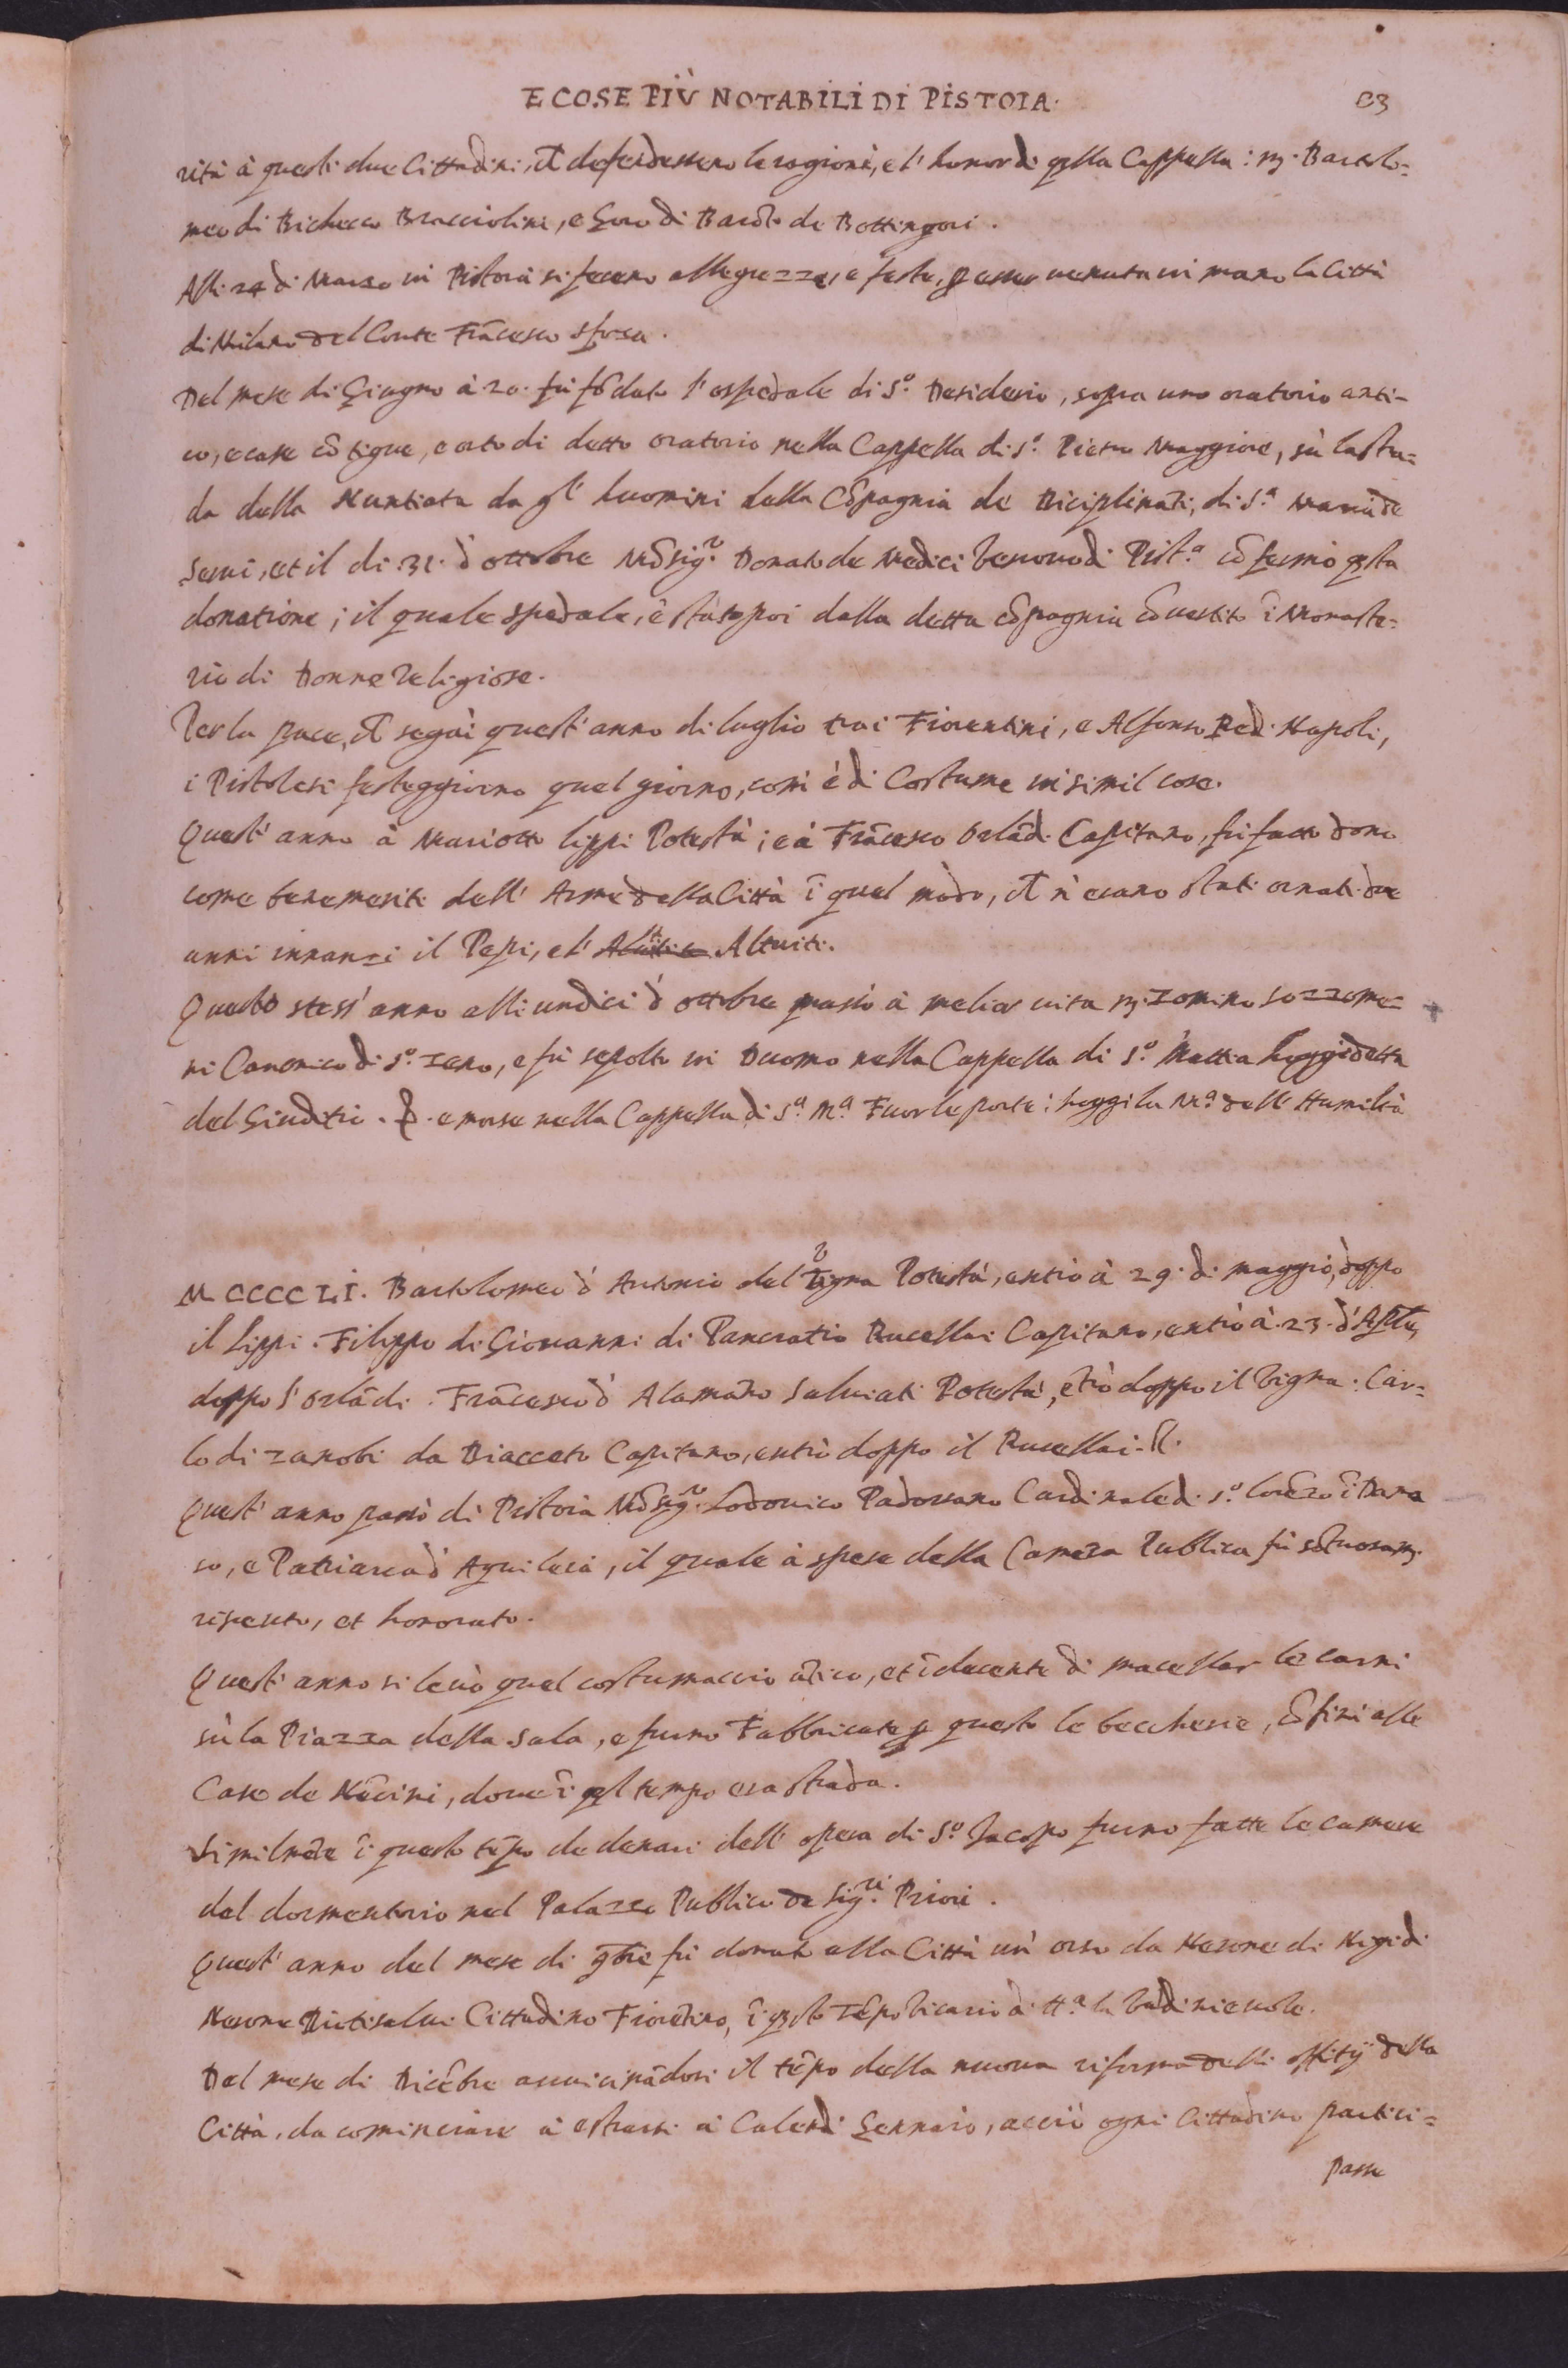 E COSE PIÙ NOTABILI DI PISTOIA. 83
rità à questi due Cittadini, ch̃ defendessero le ragioni, e l'honor di q̃lla Cappella: m. Bartolo=
meo di Bichecco Bracciolini, e Goro di Bard.o de Bottingori.
Alli 24 di Marzo in Pistoia si fecero allegrezze, e feste, p esser uenuta in mano la Città
di Milano del Conte Frãcesco sforza.
Del mese di Giugno à 20. fù fõdato l'ospedale di S.o Desiderio, sopra uno oratorio anti-
co, e case cõtigue, e orto di detto oratorio nella Cappella di S.o Pietro Maggiore, sù la stra=
da della Nuntiata da gl' huomini della Cõpagnia de Diciplinati, di S.a Maria de
Serui, et il di .31. d'ottobre Mõsig.r Donato de Medici Vescouo di Pist.a cõfermò q̃sta
donatione; il quale spedale, è stato poi dalla detta cõpagnia cõuertito ĩ Monaste=
rio di Donne Religiose.
Per la pace, ch̃ seguì quest'anno di luglio tra i Fiorentini, e Alfonso Re di Napoli,
i Pistolesi festeggiorno quel giorno, com'è di Costume in simil cose.
Quest'anno à Mariotto lippi Potestà; e à Frãcesco Orlãdi Capitano, fù fatto dono
come benemeriti dell'Arme della Città ĩ quel modo, ch̃ n'erano stati ornati due
anni innanzi il Pepi, e l' Altuiti.
Questo stess'anno alli undici d'ottobre passò à melior uita m. Zomino sozzome=
ni Canonico di S.o Zeno, e fù sepolto in Duomo nella Cappella di S.o Mattia hoggi detta
del Giuditio. e morse nella Cappella di S.a M.a Fuor le porte: hoggi la M.a dell'Humiltà
MCCCCLI. Bartolomeo d'Antonio del Vigna Potestà, entrò à 29. di maggio, doppo
il Lippi. Filippo di Giouanni di Pancratio Rucellai Capitano, entrò à .23. d'Aple,
doppo l'Orlãdi. Frãcesco d'Alamãno Saluiati Potestà, ẽtrò doppo il Vigna. Car=
lo di Zanobi da Diacceto Capitano, entrò doppo il Rucellai. R.
Quest'anno passò di Pistoia Mõsig.r Lodouico Padouano Cardinale di S.o Lorẽzo ĩ Dama
so, e Patriarca d'Aquileia, il quale à spese della Camera Publica fù sõtuosam.
riceuuto, et honorato.
Quest'anno si leuò quel costumaccio ãtico, et ĩdecente di macellar le carni
sù la Piazza della Sala, e furno Fabbricate p questo le beccherie, cõfini alle
Case de Nẽcini, doue ĩ q̃l tempo era strada.
Similmẽte ĩ questo tẽpo de denari dell'opera di S.o Jacopo furno fatte le camere
del dormentorio nel Palazzo Publico de Sig.ri Priori.
Quest'anno del mese di 9bre fù donato alla Città un'orso da Nerone di Nigi di
Nerone Dietisalui Cittadino Fiorẽtino, ĩ q̃sto tẽpo Vicario di Valdinieuole.
Del mese di Dicẽbre auuicinãdosi il tẽpo della nuoua riforma delli offitij della
Città, da cominciare à estrarsi à Calendi Gennaio, acciò ogni Cittadino partici=
passe